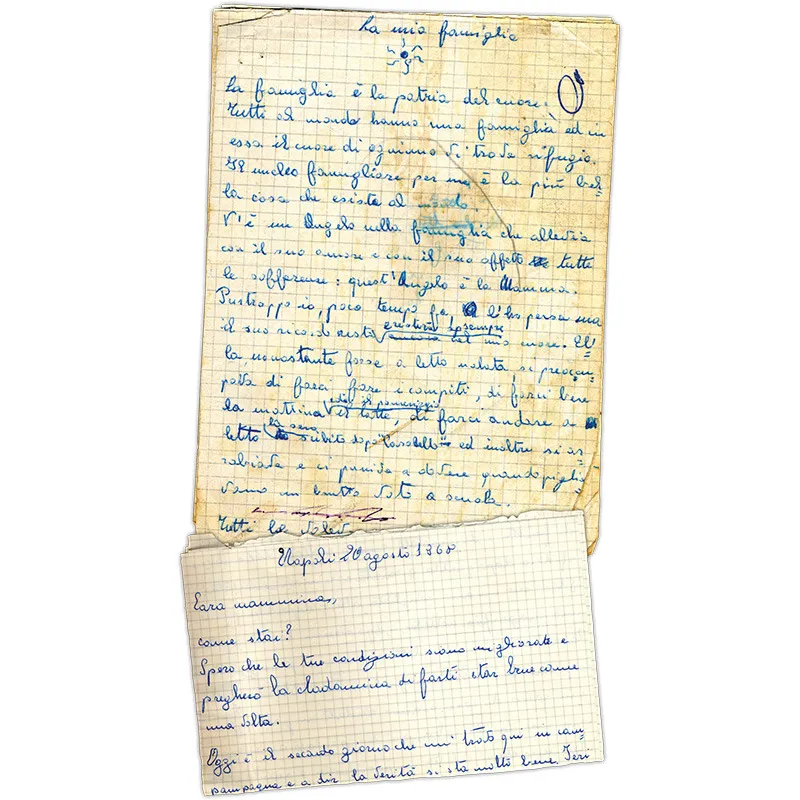 La mia famiglia
La famiglia è la patria del cuore!
Tutti al mondo hanno una famiglia ed in
essa il cuore di ognuno di trova rifugio.
Il nucleo famigliare per me è la più bel=
la cosa che esista al mondo.
V'è un Angelo nella famiglia che allevia
con il suo amore e con il suo affetto tutte
le sofferenze: quest'Angelo è la Mamma.
Purtroppo io, poco tempo fa, l'ho persa ma
esisterà sempre
il suo ricordo nel mio cuore. El=
la, nonostante fosse a letto malata si preoccu=
pava di farci fare i compiti, di farci bere
la mattina il latte, di farci andare a
la sera
letto subito dopo "Carosello" ed inoltre si ar=
rabiava e ci puniva a dovere quando piglia=
vamo un brutto voto a scuola.
Tutti la
Napoli 20 agosto 1968
Cara mammina,
come stai?
Spero che le tue condizioni siano migliorate e
pregherò la Madonnina di farti star bene come
una volta.
Oggi è il secondo giorno che mi trovo qui in cam=
pampagna e a dir la verità si sta molto bene. Ieri